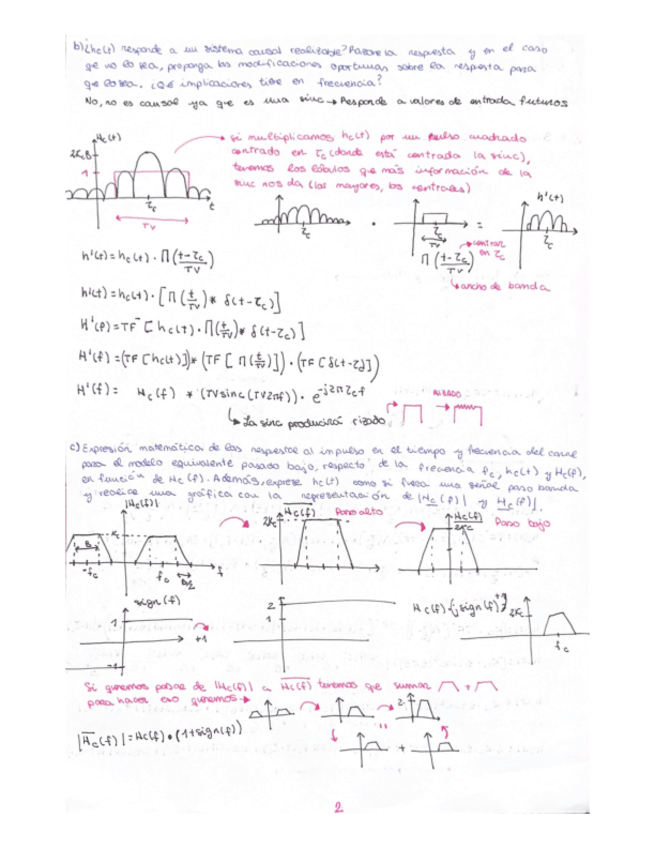 b) ¿hc(t) responde a un sistema causal realizable? Razone la respuesta y en el caso
qe no lo sea, proponga las modificaciones oportunas sobre la respuesta para
qe lo sea. ¿Qué implicaciones tiene en frecuencia?
No, no es causal ya que es una sinc → Responde a valores de entrada futuros
Hc(t)
2KcB
1
τc
t
TV
→ si multiplicamos hc(t) por un pulso cuadrado
centrado en τc (donde está centrada la sinc),
tenemos los lóbulos que más información de la
sinc nos da (los mayores, los centrales)
τc
·
τc
TV
=
h'(t)
τc
Π(t-τc/TV)
→ centrar en τc
↳ ancho de banda
h'(t) = hc(t) · Π(t-τc/TV)
h'(t) = hc(t) · [Π(t/TV) * δ(t-τc)]
H'(f) = TF [hc(t) · Π(t/TV) * δ(t-τc)]
H'(f) = (TF[hc(t)]) * (TF[Π(t/TV)]) · (TF[δ(t-τc)])
H'(f) = Hc(f) * (TVsinc(TV2πf)) · e^-j2πτcf
↳ La sinc producirá rizado
RIZADO
c) Expresión matemática de las respuestas al impulso en el tiempo y frecuencia del canal
para el modelo equivalente pasado bajo, respecto de la frecuencia fc, hc(t) y Hc(f),
en función de Hc(f). Además, exprese hc(t) como si fuera una señal paso banda
y realice una gráfica con la representación de |Hc(f)| y Hc(f)|.
|Hc(f)|
B
Kc
-fc
fc
f
Hc(f)
2Kc
Paso alto
Hc(f)
2Kc
Paso bajo
sign(f)
1
-1
+1
2
1
Hc(f)·(jsign(f)+1)
2Kc
fc
Si queremos pasar de |Hc(f)| a Hc(f) tenemos que sumar +
para hacer eso queremos →
2
...
+
|Hc(f)| = Hc(f) · (1+sign(f))
2